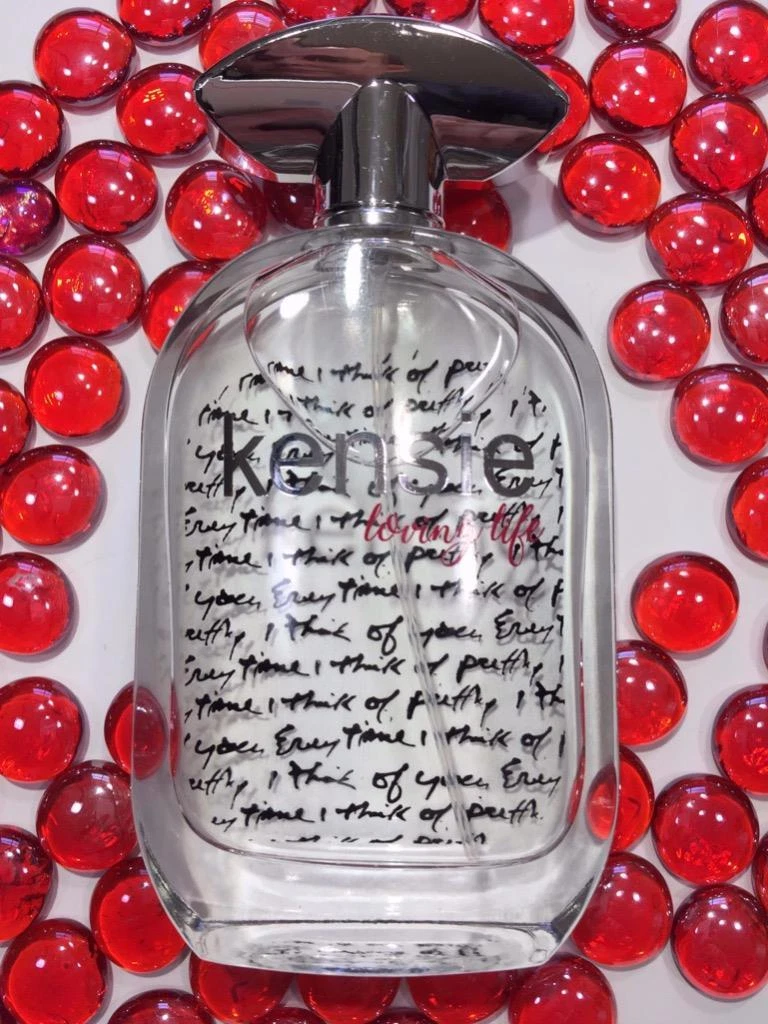 time I think of
time I think of pretty I
kensie
loving life
Every time I of
time I think of pretty I
you Every time I think of
pretty I think of you Every
Every time I think of pretty I
time I think of pretty I
you Every time I think of
pretty I think of you Every
time I think of pretty